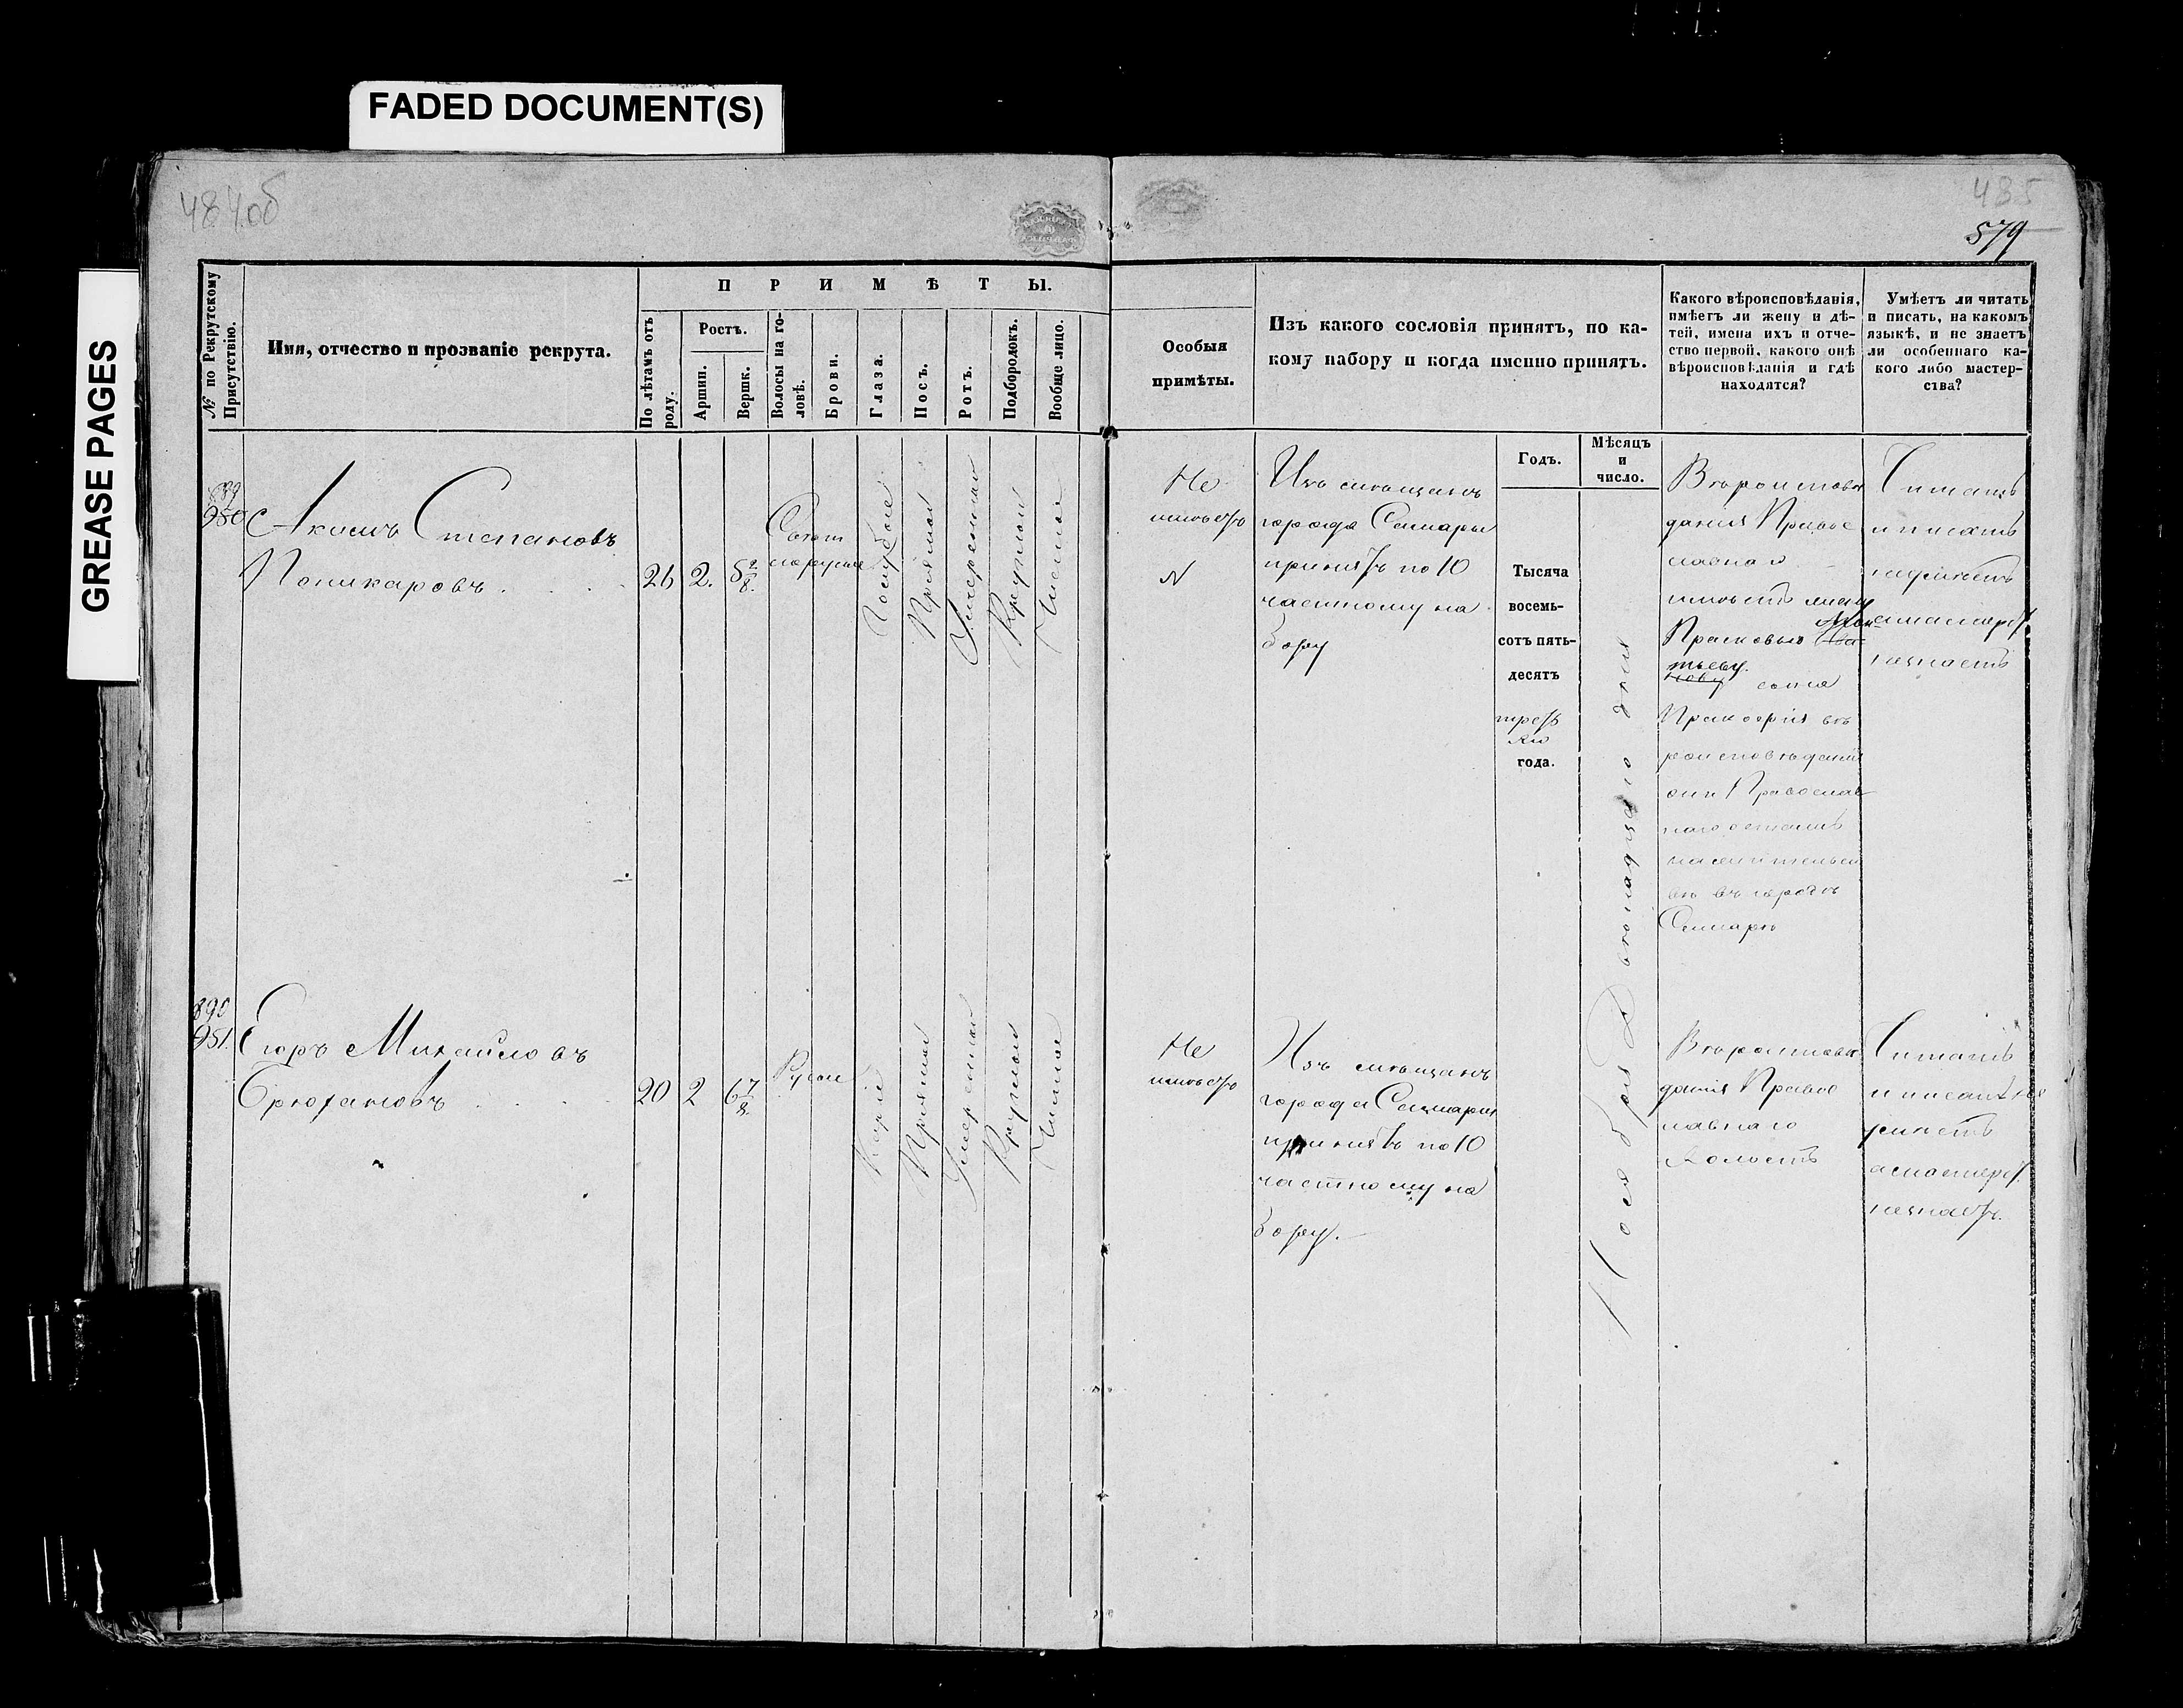 FADED DOCUMENT(S)
GREASE PAGES
484об
485
579
№ по Рекрутскому
Присутствію.
Имя, отчество и прозваніе рекрута.
ПРИМѢТЫ.
По лѣтамъ отъ
роду.
Ростъ.
Аршин.
Вершк.
Волосы на го-
ловѣ.
Брови.
Глаза.
Носъ.
Ротъ.
Подбородокъ.
Вообще лицо.
Особыя
примѣты.
Изъ какого сословія принятъ, по ка-
кому набору и когда именно принятъ.
Годъ.
Мѣсяцъ
и
число.
Какого вѣроисповѣданія,
имѣетъ ли жену и дѣ-
тей, имена ихъ и отче-
ство первой, какого онѣ
вѣроисповѣданія и гдѣ
находятся?
Умѣетъ ли читать
и писать, на какомъ
языкѣ, и не знаетъ
ли особеннаго ка-
кого либо мастер-
ства?
889
950
Акимъ Степановъ
Поликаровъ
26
2.
5 2/8.
Свѣтло
русые
Голубые
Прямой
Умеренный
Круглый
Чистое
Не
имѣетъ
Изъ мѣщанъ
города Самары
принятъ по 10
частному на
бору
Тысяча
восемь-
сотъ пять-
десятъ
третья
го
года.
Ноября 2 второнадцать дня
Вѣроиспове
данія Право
славнаго
имѣетъ жену
Прасковью
тьеву.
вѣ
роисповѣданія
они Православ
наго
въ городѣ
Самарѣ
Читать
и писать
неумѣетъ
и мастерст
незнаетъ
890
951.
Егоръ Михайловъ
Брюхановъ
20
2
6 7/8
Русые
Каріе
Прямой
Умеренный
Круглый
Чистое
Не
имѣетъ
Изъ мѣщанъ
города Самары
принятъ по 10
частному на
бору.
Вѣроиспове
данія Право
славнаго
Холостъ
Читать
и писать не
умѣетъ
а мастерст.
незнаетъ.